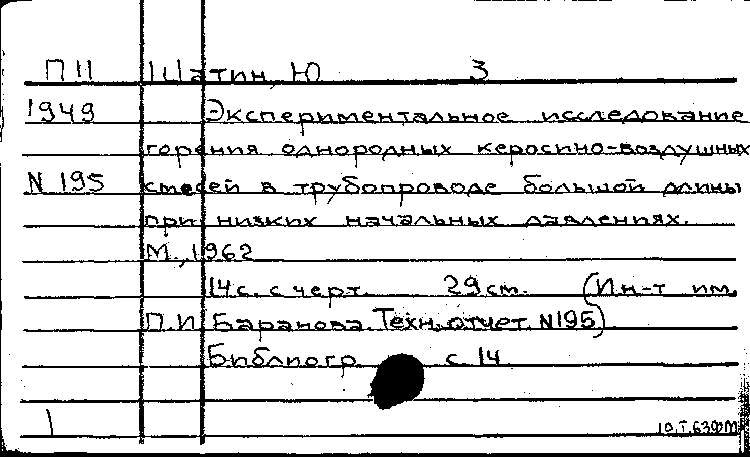 П 11 Шатин, Ю 3
1949 Экспериментальное исследование
горения однородных керосино-воздушных
N 195 смесей в трубопроводе большой длины
при низких начальных давлениях.
М., 1962
14 с. с черт. 29 см. (Ин-т им.
П.И. Баранова. Техн. отчет N195)
Библиогр с 14
1